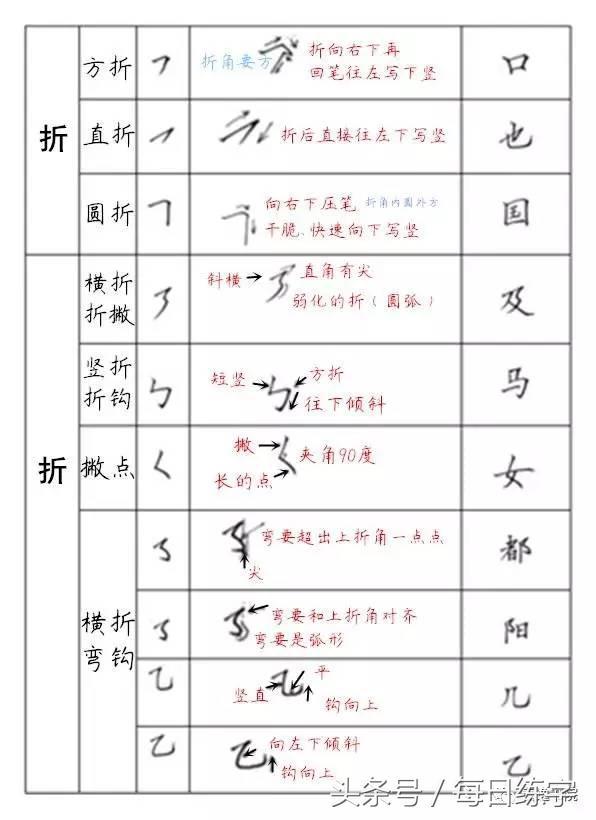 折
方折
折角要方
折向右下再
回笔往左写下竖
口
直折
折后直接往左下写竖
也
圆折
向右下压笔 折角内圆外方
干脆、快速向下写竖
国
折
横折
折撇
斜横
直角有尖
弱化的折（圆弧）
及
竖折
折钩
短竖
方折
往下倾斜
马
撇点
撇
长的点
夹角90度
女
横折
弯钩
弯要超出上折角一点点
尖
都
弯要和上折角对齐
弯要是弧形
阳
竖直
平
钩向上
几
向左下倾斜
钩向上
乙
头条号／每日练字